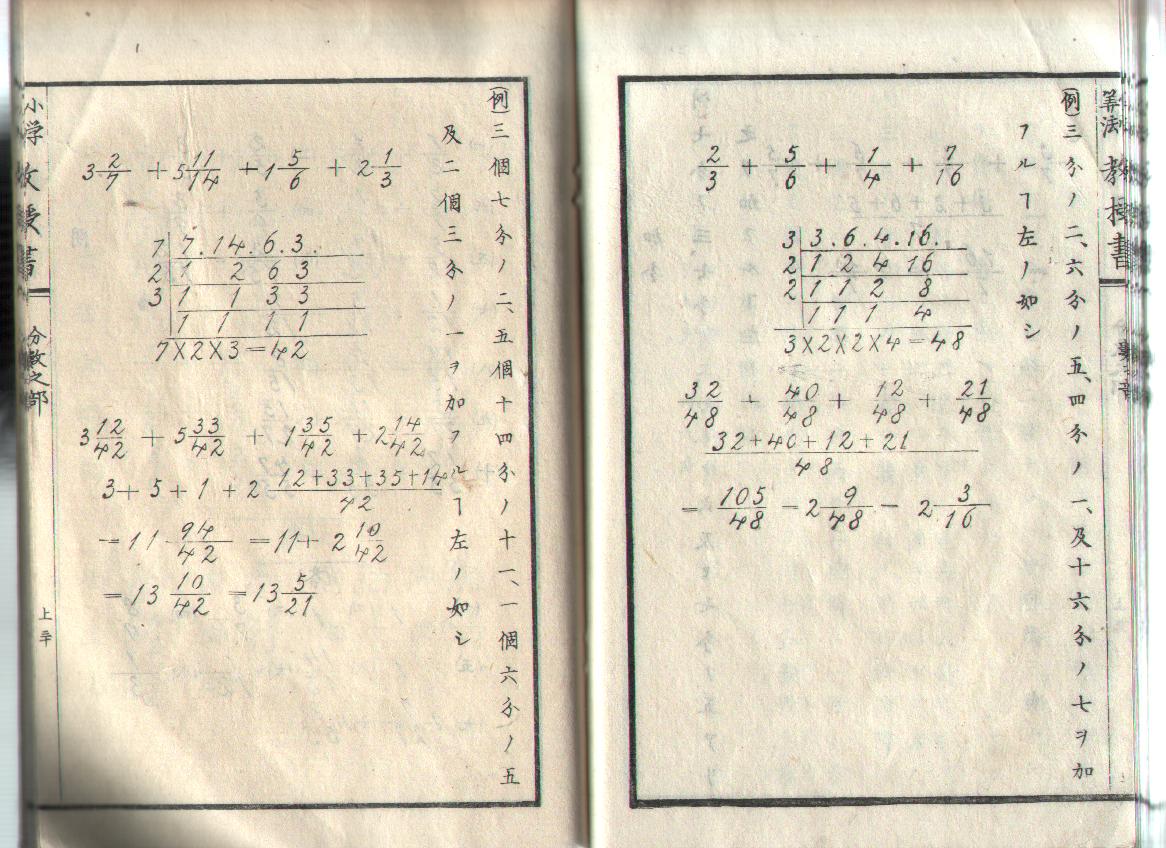 算法 教授書
(例)三分ノ二、六分ノ五、四分ノ一、及十六分ノ七ヲ加
フルヿ左ノ如シ
2/3 + 5/6 + 1/4 + 7/16
3 | 3. 6. 4. 16.
2 | 1 2 4 16
2 | 1 1 2 8
1 1 1 4
3×2×2×4=48
32/48 + 40/48 + 12/48 + 21/48
32+40+12+21/48
= 105/48 = 2 9/48 = 2 3/16
(例)三個七分ノ二、五個十四分ノ十一、一個六分ノ五
及二個三分ノ一ヲ加フルヿ左ノ如シ
3 2/7 + 5 11/14 + 1 5/6 + 2 1/3
7 | 7. 14. 6. 3.
2 | 1 2 6 3
3 | 1 1 3 3
1 1 1 1
7×2×3=42
3 12/42 + 5 33/42 + 1 35/42 + 2 14/42
3+5+1+2 12+33+35+14/42
= 11 94/42 = 11+ 2 10/42
= 13 10/42 = 13 5/21
小学 教授書
分数之部
上 三十